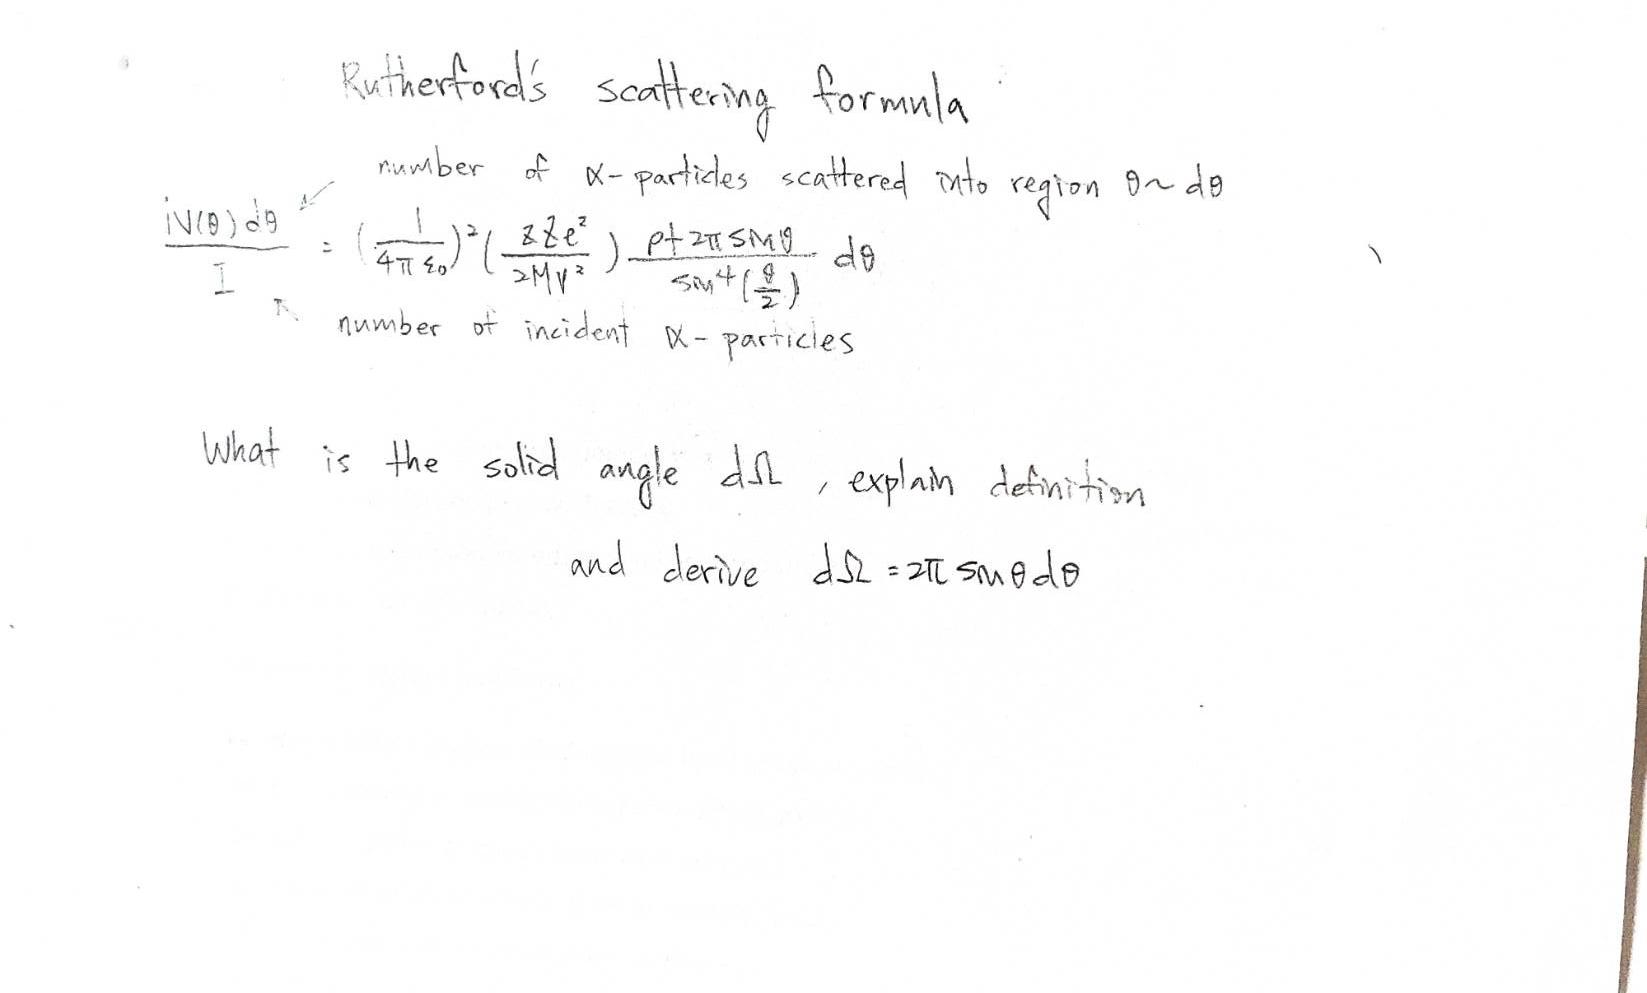 Rutherford's scattering formula
number of α-particles scattered into region θ~dθ
N(θ)dθ / I = (1/4πε₀)² (zZe²/2Mv²) ρt2πsinθ/sin⁴(θ/2) dθ
number of incident α-particles
What is the solid angle dΩ, explain definition
and derive dΩ = 2π sinθdθ